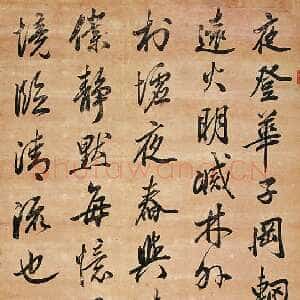 夜登華子岡輞
遠火明滅林外
村墟夜舂與
僕靜默每憶
境臨清流也